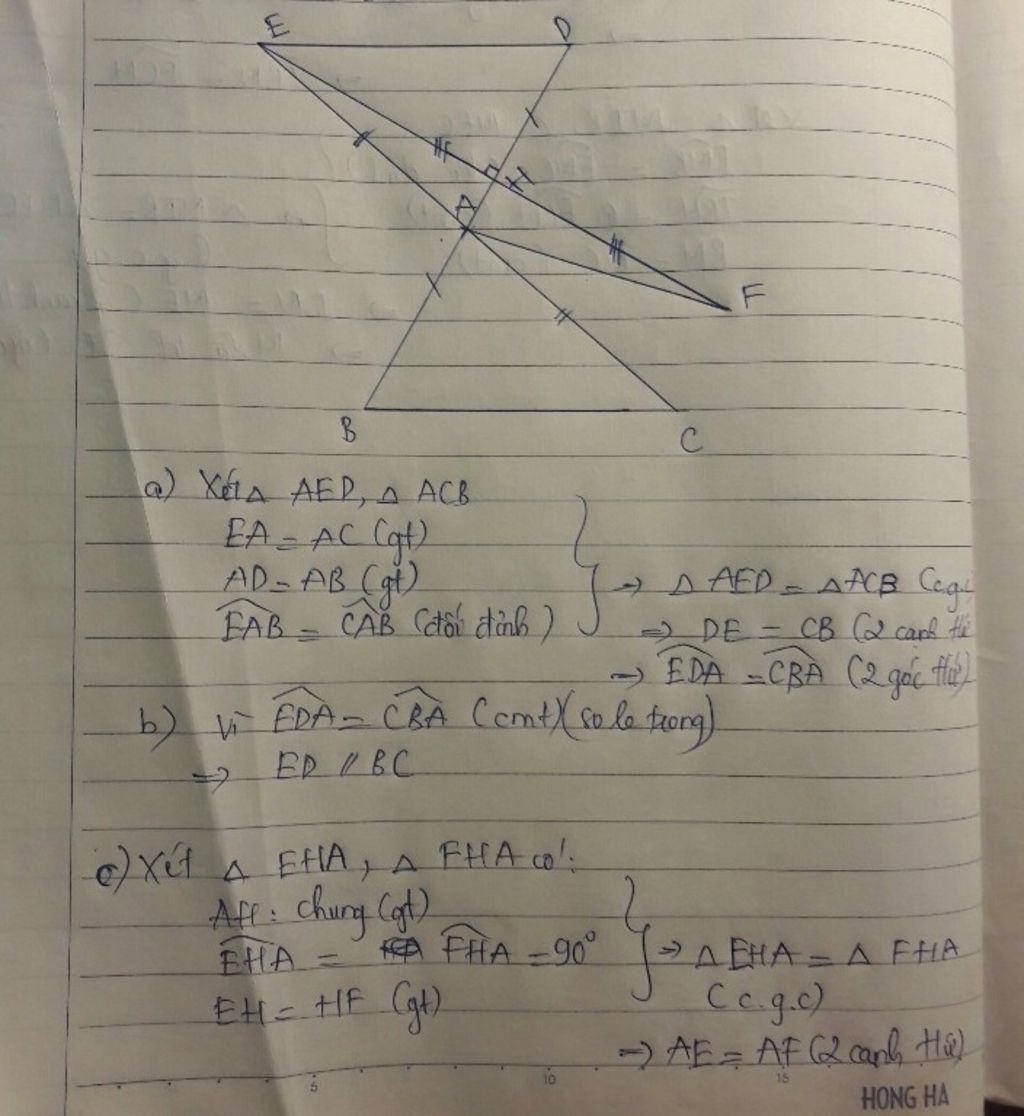 E D
H
A
F
B C
a) Xét △ AED, △ ACB
EA = AC (gt)
AD = AB (gt) ⇒ △ AED = △ ACB (c.g.
EAB = CAB (đối đỉnh) ⇒ DE = CB (2 cạnh
⇒ EDA = CBA (2 góc
b) Vì EDA = CBA (cmt) (so le trong)
⇒ ED // BC
c) Xét △ EHA, △ FHA có:
AH: chung (gt)
EHA = FHA = 90° ⇒ △ EHA = △ FHA
EH = HF (gt) (c.g.c)
⇒ AE = AF (2 cạnh
5 10 15
HONG HA